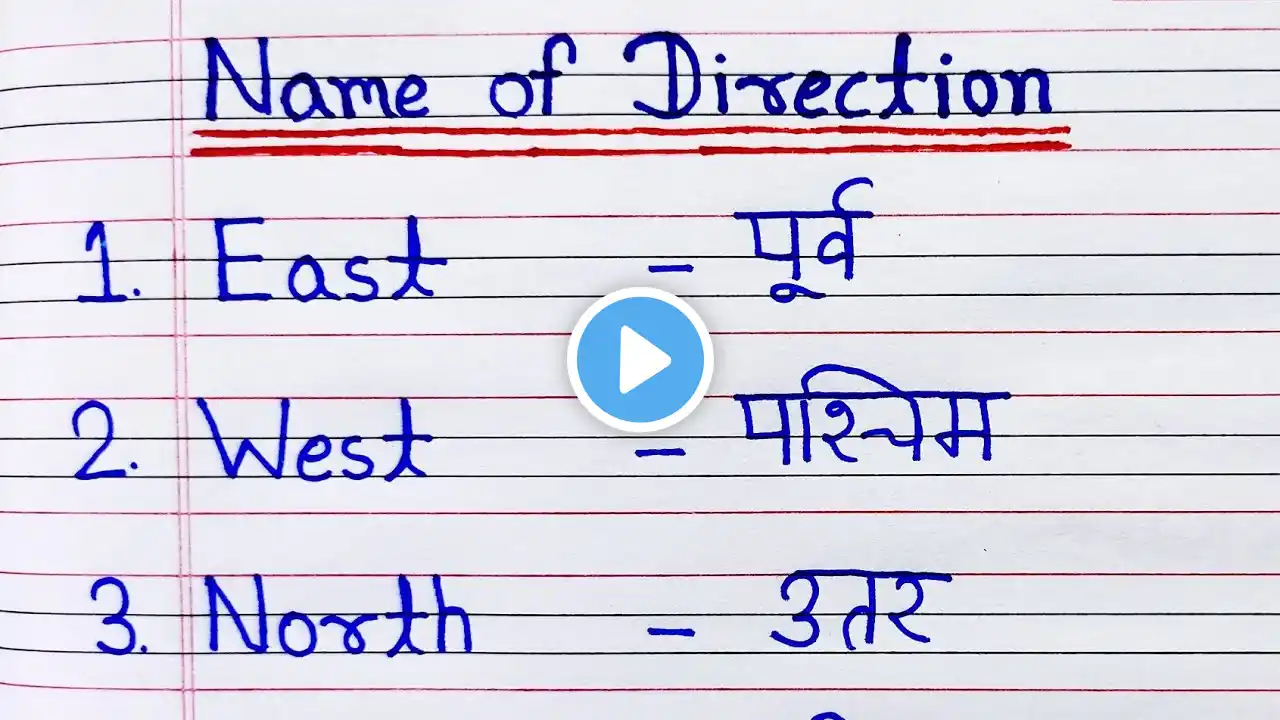 Name of Direction
1. East - पूर्व
2. West - पश्चिम
3. North - उतर